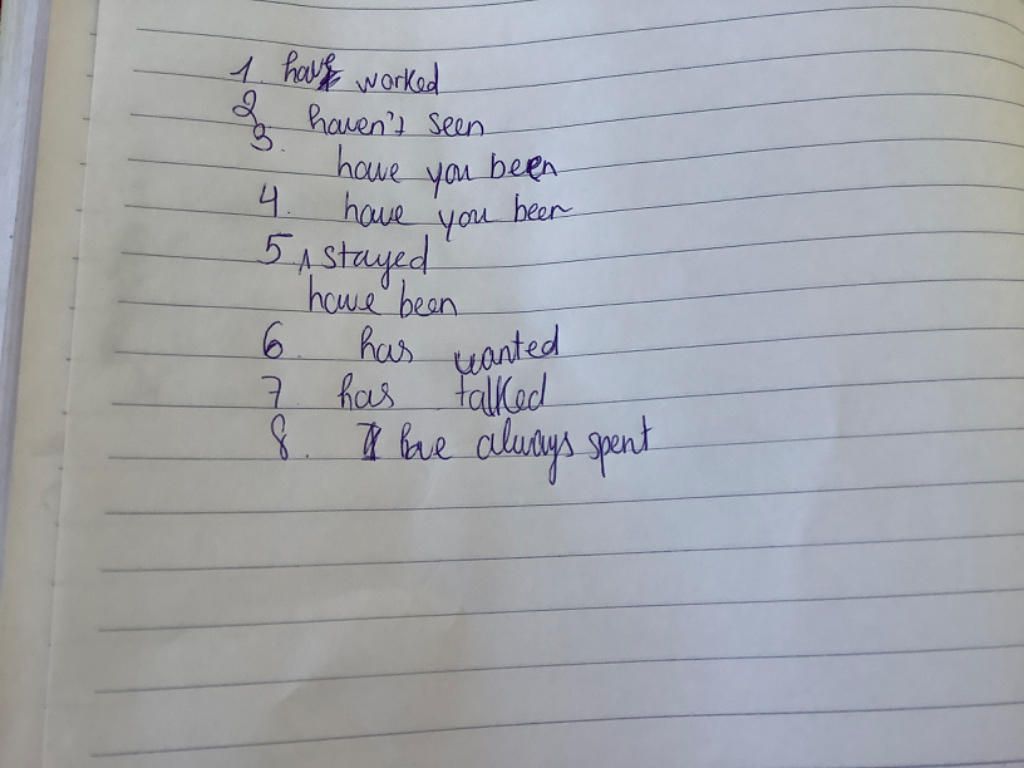 1. have worked
2. haven't seen
3.
have you been
4. have you been
5 ∧ stayed
have been
6. has wanted
7. has talked
8. I have always spent